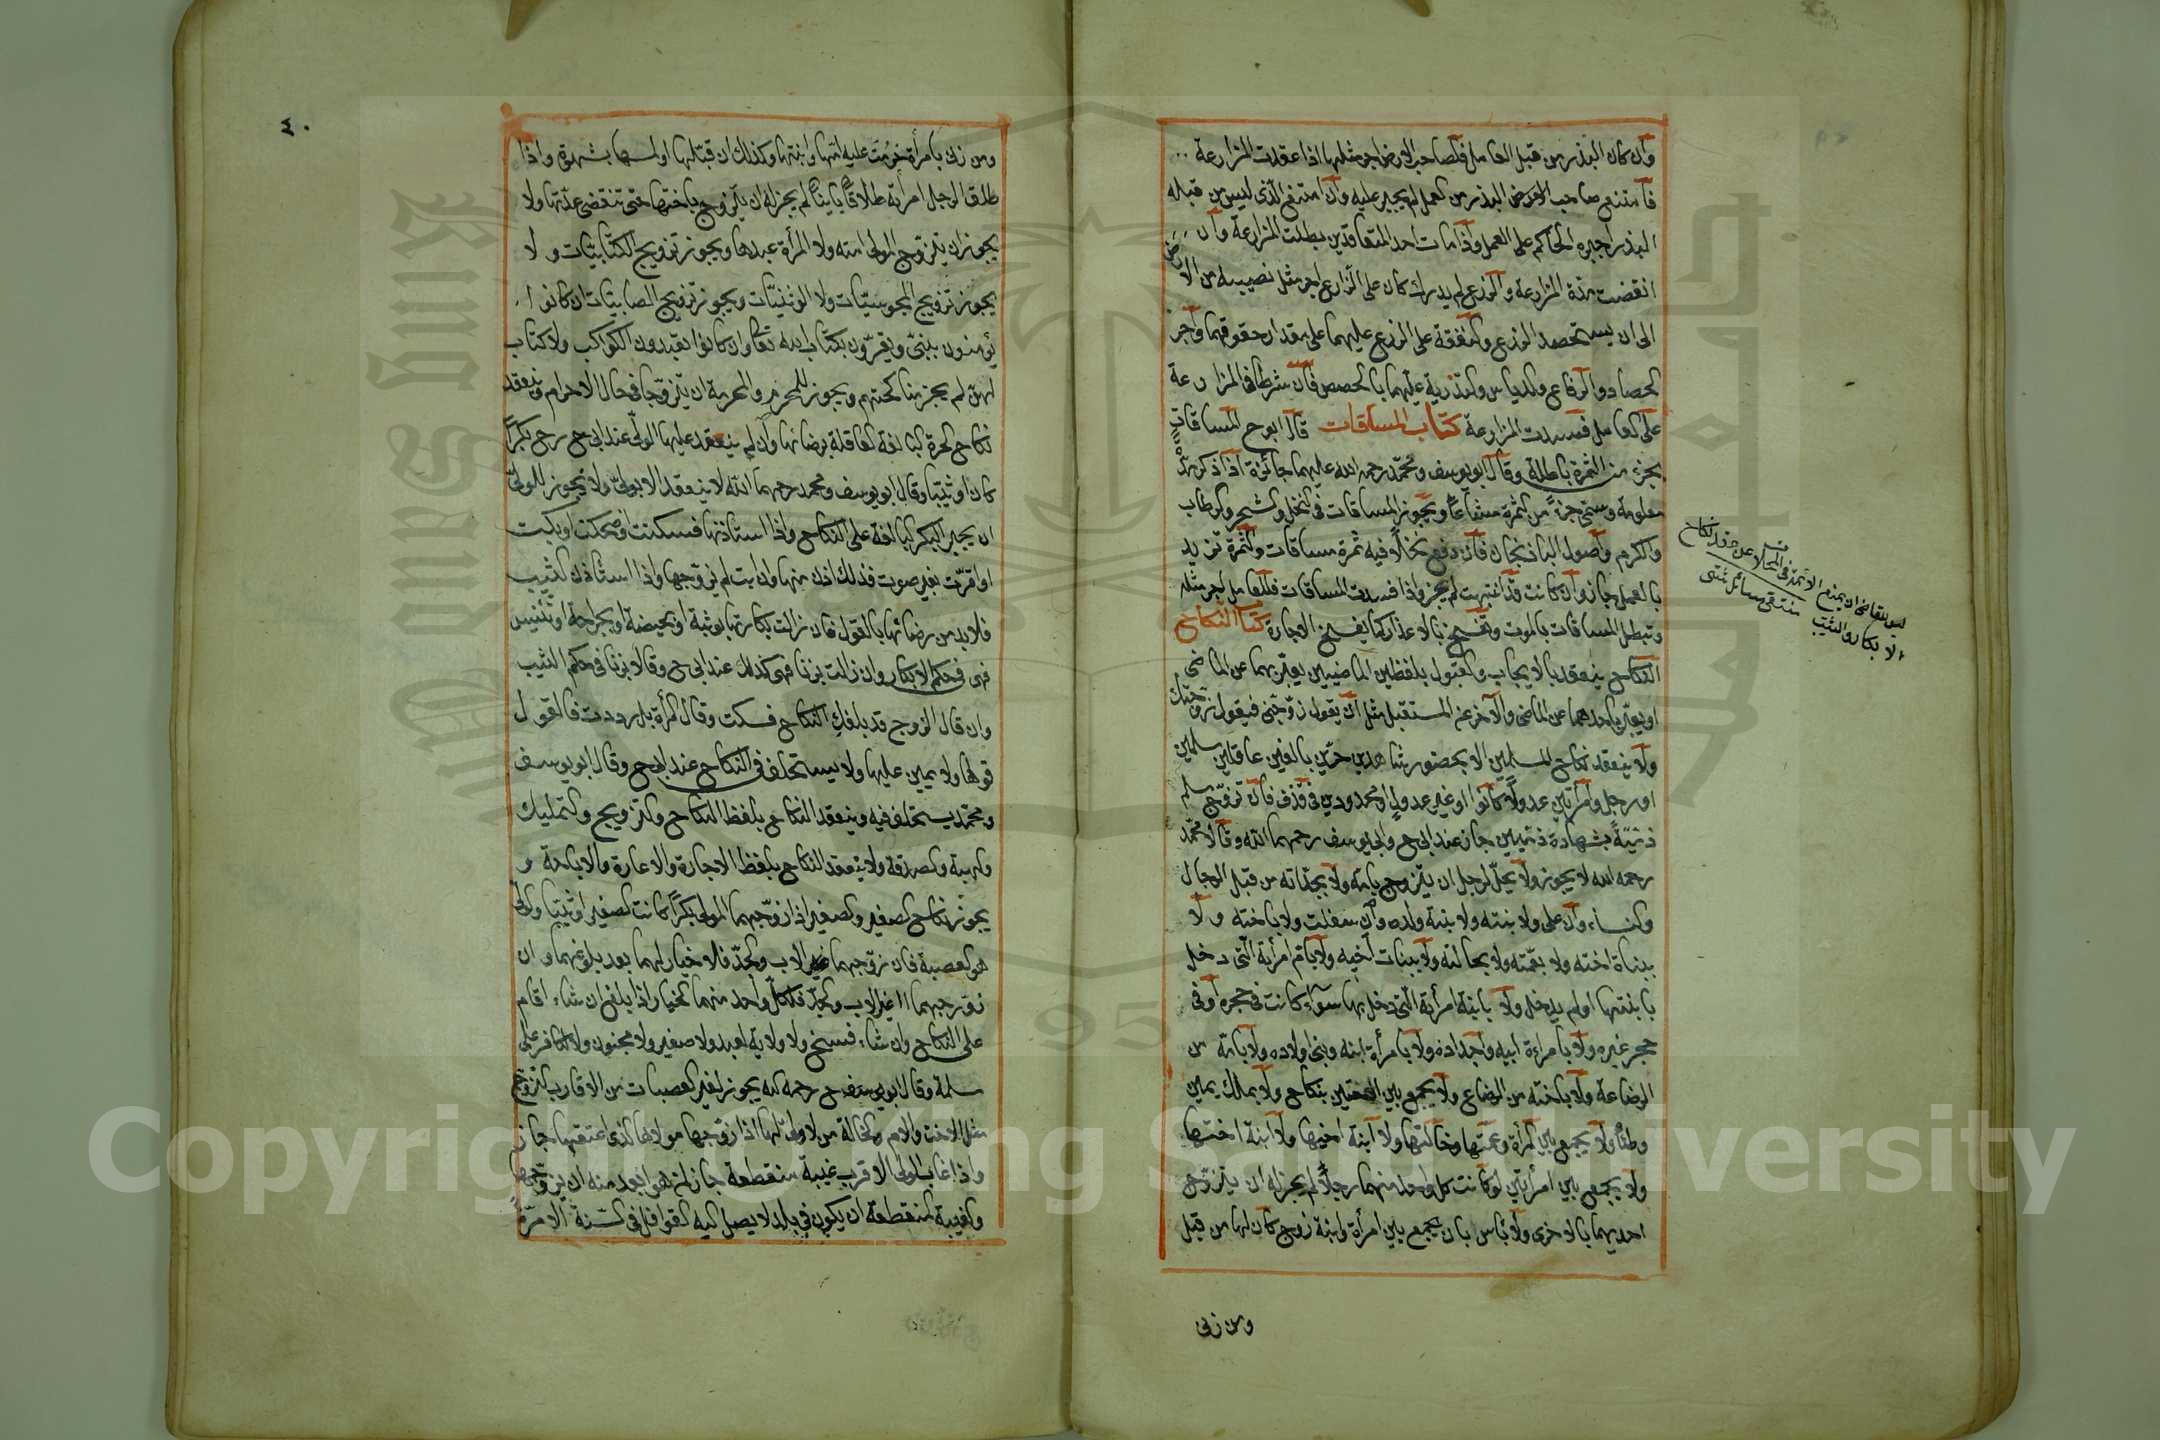 وان كان البذر من قبل العامل فلصاحب الارض اجر مثلها اذا عقدت المزارعة
فامتنع صاحب الارض البذر من العمل لم يجبر عليه وان امتنع الذى ليس من قبله
البذر اجبره الحاكم على العمل واذا مات احد المتعاقدين بطلت المزارعة وان
انقضت مدة المزارعة والزرع لم يدرك كان على الزارع اجر مثل نصيبه من الارض
الى ان يستحصد الزرع والنفقة على الزرع عليهما على مقدار حقوقهما واجر
الحصاد والرفاع والدياس والتذرية عليهما بالحصص فان شرطا فى المزارعة
على العامل فسدت المزارعة كتاب المساقات قال ابو ح المساقات
بجزء من الثمرة باطلة وقال ابو يوسف ومحمد رحمة الله عليهما جائزة اذا ذكر مدة
معلومة وسمى جزءً من الثمرة مشاعًا ويجوز المساقات فى النخل والشجر والرطاب
والكرم واصول الباذنجان فان دفع نخلًا فيه ثمرة مساقات والثمرة تزيد
بالعمل جاز وان كانت قد انتهت لم يجز واذا فسدت المساقات فللعامل اجر مثله
وتبطل المساقات بالموت وتفسخ بالاعذار كما يفسخ الاجارة كتاب النكاح
النكاح ينعقد بالايجاب والقبول بلفظين الماضيين يعبر بهما عن الماضى
او يعبر باحدهما عن الماضى والآخر عن المستقبل مثل ان يقول زوجنى فيقول زوجتك
ولا ينعقد نكاح المسلمين الا بحضور شاهدين حرين بالغين عاقلين مسلمين
او رجل وامرأتين عدولًا كانوا او غير عدول او محدودين فى قذف فان تزوج مسلم
ذميّة بشهادة ذميين جاز عند ابى ح وابى يوسف رحمهما الله وقالا محمد
رحمه الله لا يجوز ولا يحل لرجل ان يتزوج بامه ولا بجداته من قبل الرجال
والنساء وان على ولا بنته ولا بنتة ولده وان سفلت ولا باخته ولا
ببناة اخته ولا بعمته ولا بخالته ولا ببنات اخيه ولا بام امرأته التى دخل
بابنتها او لم يدخل ولا بابنة امرأته التى دخل بها سواء كانت فى حجره او فى
حجر غيره ولا بامراءة ابيه واجداده ولا بامرأة ابنه وبنى اولاده ولا بامه من
الرضاعة ولا باخته من الرضاع ولا يجمع بين الاختين بنكاح ولا بملك يمين
وطئًا ولا يجمع بين المرأة وعمتها وخالتها ولا ابنة اخيها ولا ابنة اختها
ولا يجمع بين امرأتين لو كانت كل واحد منهما رجلًا لم يجز له ان يتزوج
احديهما بالاخرى ولا باس بان يجمع بين امرأة وابنة زوج كان لها من قبل
ومن زنى
ليس للقاضى ان يمنع الائمة فى المحلات عن عقد النكاح
الابكار والثيب منتقى مسائل شتى
٤٠
ومن زنى بامرأة حرمت عليه امها وابنتها وكذلك ان قبتلها او لمسها بشهوة واذا
طلق الرجل امرأته طلاقًا باينًا لم يجز له ان يتزوج باختها حتى تنقضى عدتها ولا
يجوز ان يتزوج المولى امته ولا المرأة عبدها ويجوز تزويج الكتابيات ولا
يجوز تزويج المجوسيات ولا الوثنيات ويجوز تزويج الصابيات ان كانوا
يؤمنون بنبى ويقرون بكتاب الله تعا وان كانوا يعبدون الكواكب ولا كتاب
لهن لم يجز مناكحتهم ويجوز للمحرم والمحرمة ان يتزوجا فى حال الاحرام وينعقد
نكاح الحرة البالغة العاقلة برضائها وان لم ينعقد عليها الولى عند ابى ح رح بكرًا
كان او ثيبًا وقال ابو يوسف ومحمد رحمهما الله لا ينعقد الا بولى ولا يجوز للولى
ان يجبر البكر البالغة على النكاح واذا استاذنها فسكنت او ضحكت او بكت
او اقرت بغير صوت فذلك اذن منها وان ابت لم يزوجها واذا استاذن الثيب
فلا بد من رضائها بالقول فان زالت بكارتها بوثبة او بحيضة او بجراحة او تعنيس
فهى فى حكم الابكار وان زالت بزنا فهو كذلك عند ابى ح وقالا بزنا فى حكم الثيب
وان قال الزوج قد بلغك النكاح فسكت وقال المرأة بل رددت فالقول
قولها ولا يمين عليها ولا يستحلف فى النكاح عند ابى ح وقال ابو يوسف
ومحمد يستحلف فيه وينعقد النكاح بلفظ النكاح والتزويج والتمليك
والهبة والصدقة ولا ينعقد النكاح بلفظ الاجارة والاعارة والاباحة و
يجوز نكاح الصغير والصغير اذا زوجهما المولى بكرًا كانت الصغير او ثيبًا والولى
هو العصبة فان زوجهما الاب والجد فلا خيار لهما بعد بلوغهما وان
زوجهما غير الاب والجد فلكل واحد منهما الخيار اذا بلغ ان شاء اقام
على النكاح وان شاء فسخ ولا ولاية لعبد ولا صغير ولا مجنون ولا كافر على
مسلمة وقال ابو يوسف ح رحمه الله يجوز لغير العصبات من الاقارب التزويج
مثل الاخت والام والخالة من لا ولى لها اذا زوجها مولاها الذى اعتقها جاز
واذا غاب الولى الاقرب غيبة منقطعة جاز لمن هو ابعد منه ان يزوجها
والغيبة المنقطعة ان يكون فى بلد لا يصل اليه القوافل فى السنة الا مرة
Copyright © King Saud University
King Saud University
1957